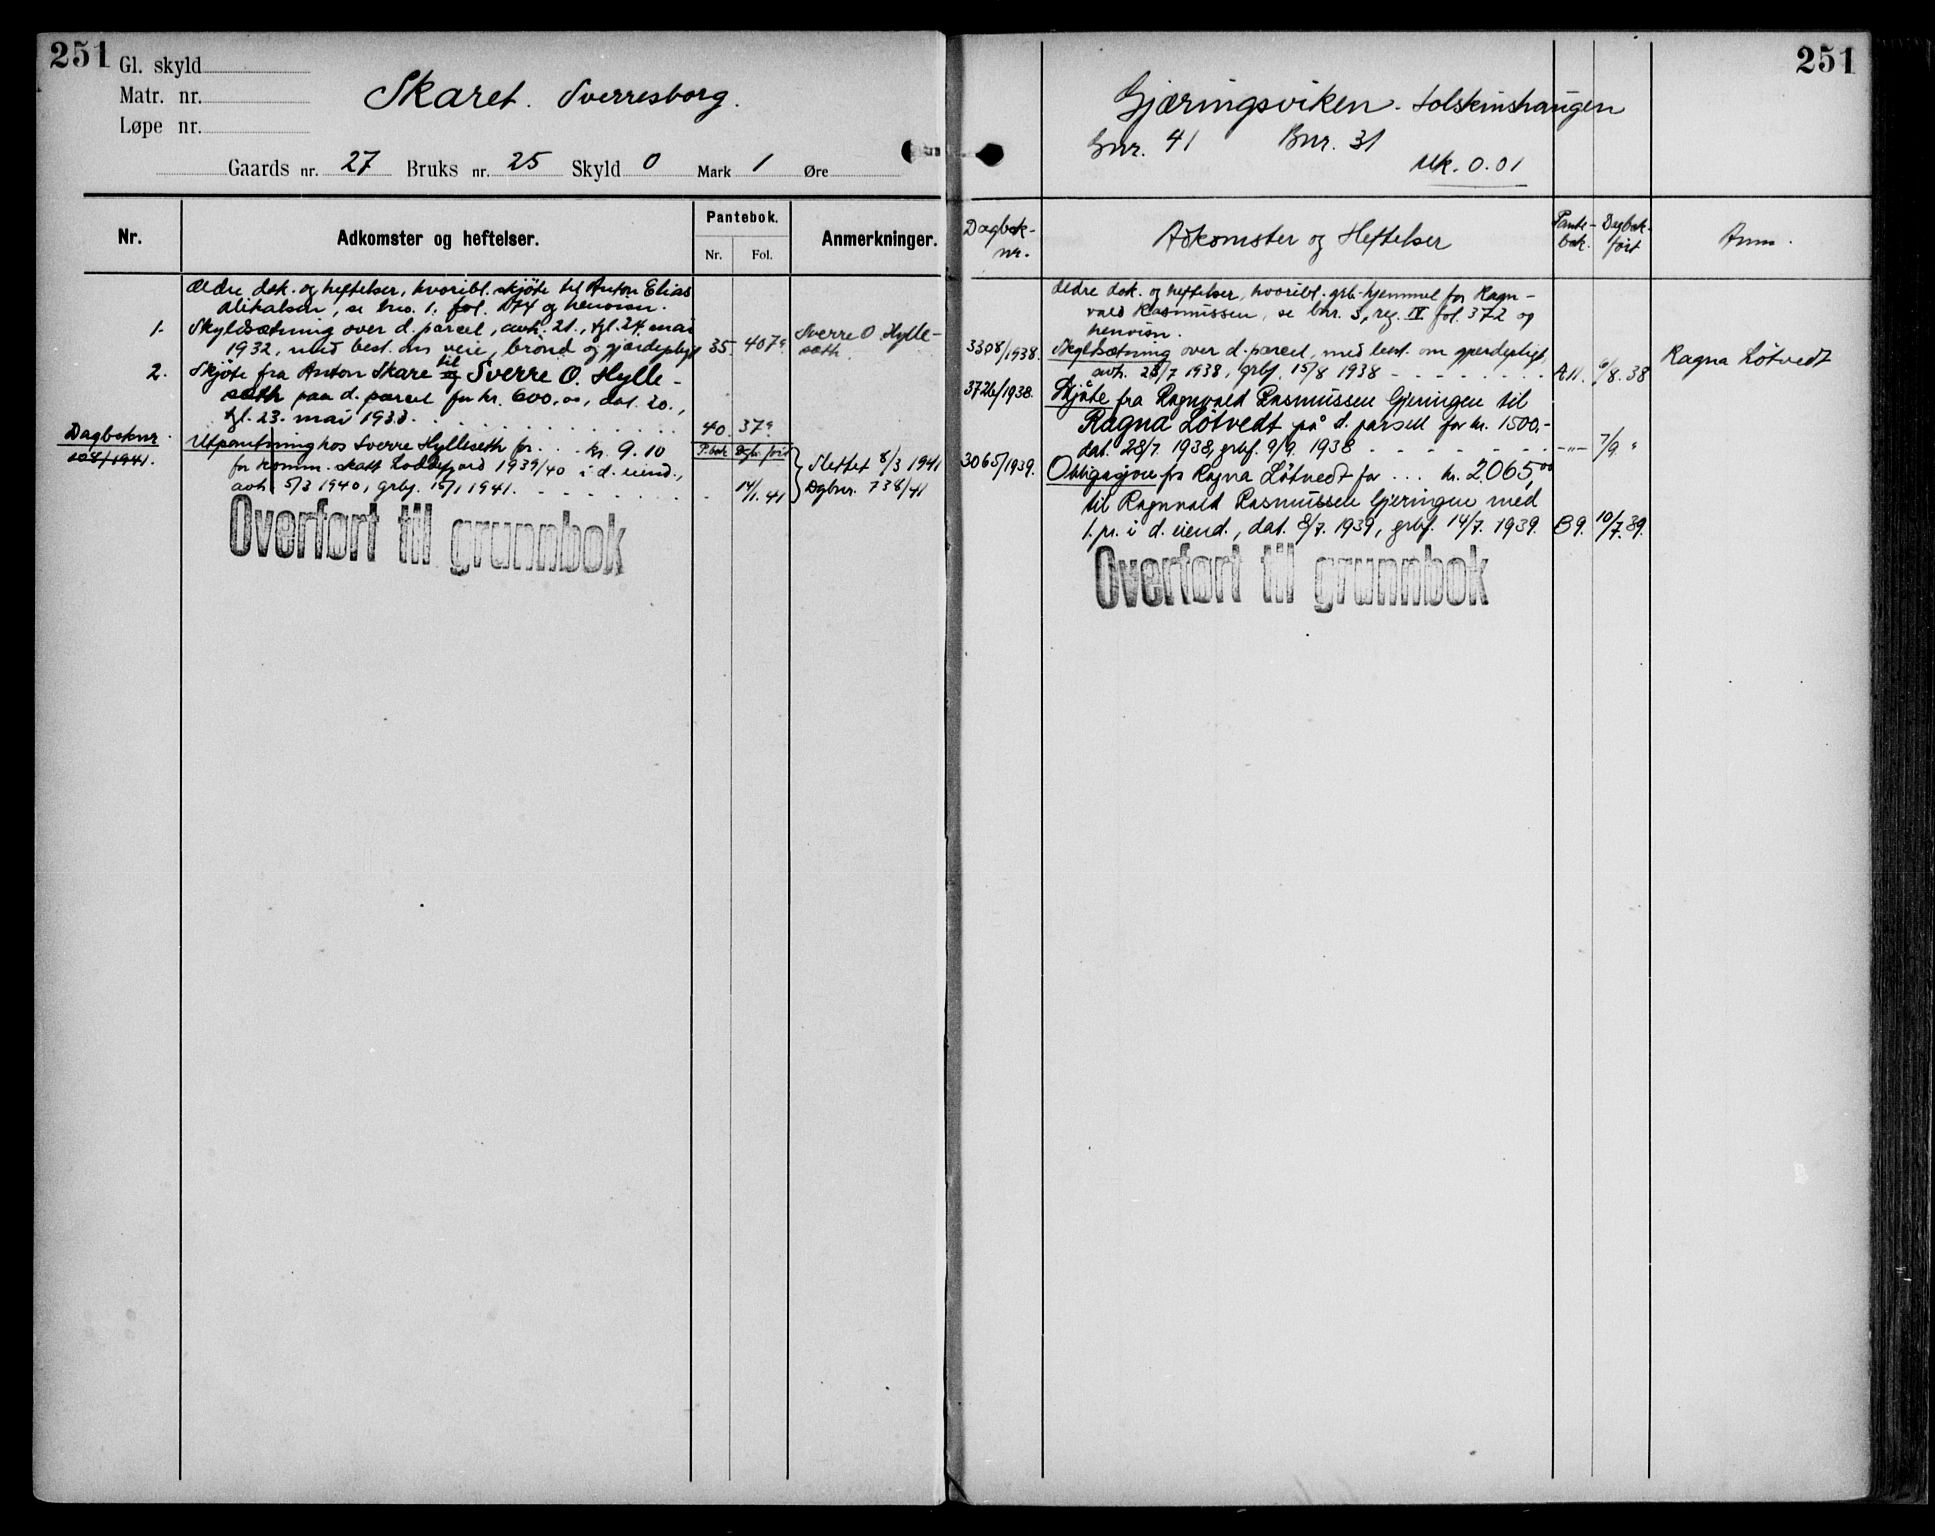 251
Gl. skyld
Matr. nr.
Løpe nr.
Skaret. Sverresborg.
Gaards nr. 27 Bruks nr. 25 Skyld 0 Mark 1 Øre
Nr.
Adkomster og heftelser.
Pantebok.
Nr. Fol.
Anmerkninger.
Ældre dok. og heftelser, hvoribl. skjöte til Anton Elias
se bno. 1. fol. og henvisn.
1. Skyldsætning over d. parcel, avh. 21., tgl. 24. mai
1932, med best. om veie, brønd og gjærdeplygt 35. 407ª Sverre O Hylle-
sæth.
2. Skjöte fra Anton Skare til Sverre O. Hylle-
sæth paa d. parcel for kr. 600,00, dat. 20.,
tgl. 23. mai 1933. 40. 37ª
Dagboknr.
108/1941.
Utpantning hos Sverre Hylleseth for ... kr. 9.10 P.bok Dgb. ført
for komm. skatt Loddefjord 1939/40 i d. eiend., Slettet 8/3 1941
avh. 5/3 1940, grbf. 15/1 1941. 14/1. 41 Dgbnr. 738/41
Overført til grunnbok
251
Gjæringsviken. Solskinshaugen
Gnr. 41 Bnr. 31
Mk. 0.01
Dagbok-
nr.
Adkomster og Heftelser
Pante-
bok.
Dagbok.
ført
Anm.
Ældre dok. og heftelser, hvoribl. grb-hjemmel for Ragn-
vald Rasmussen, se bnr. 3, reg. IV fol. 372 og
henvisn.
3308/1938. Skyldsætning over d. parcel, med best. om gjerdepligt,
avh. 28/7 1938, grbf. 15/8 1938 A 11. 6/8. 38 Ragna Løtvedt
3726/1938. Skjøte fra Ragnvald Rasmussen Gjeringen til
Ragna Løtvedt på d. parsell for kr. 1500,-
dat. 28/7. 1938, grbf. 9/9. 1938 -"- 7/9 "
3065/1939. Obligasjon fra Ragna Løtvedt for ... kr. 2065,00
til Ragnvald Rasmussen Gjeringen med
1. pr. i d. eiend., dat. 8/7. 1939, grbf. 14/7. 1939. B 9. 10/7. 39.
Overført til grunnbok